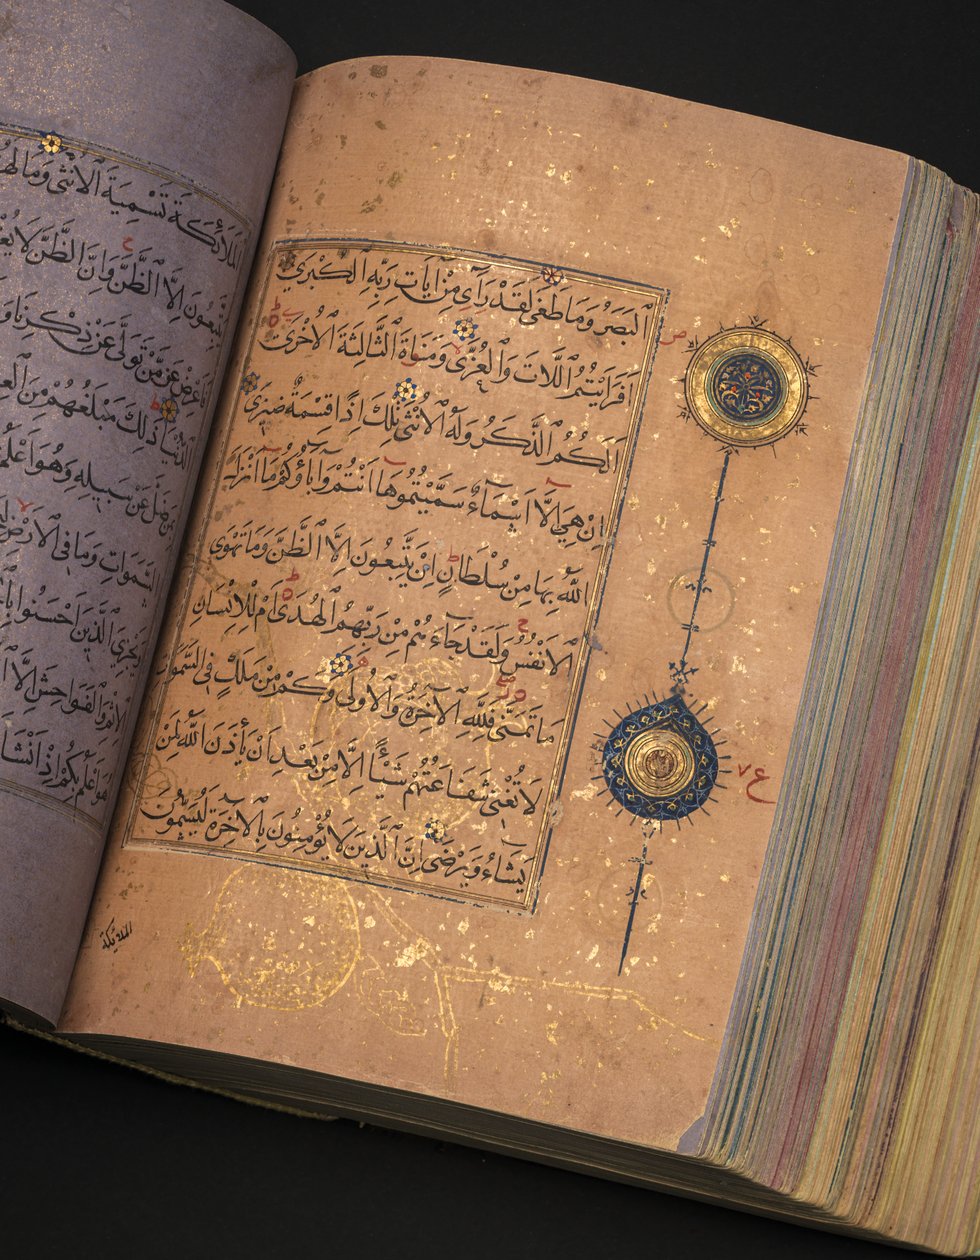 البَصَرُ وَمَا طَغٰى لَقَدْ رَاٰى مِنْ اٰيَاتِ رَبِّهِ الْكُبْرٰي
اَفَرَاَيْتُمُ اللَّاتَ وَالْعُزّٰى وَمَنَاةَ الثَّالِثَةَ الْاُخْرٰى
اَلَكُمُ الذَّكَرُ وَلَهُ الْاُنْثٰى تِلْكَ اِذًا قِسْمَةٌ ضِيزٰى
اِنْ هِيَ اِلَّا اَسْمَآءٌ سَمَّيْتُمُوهَا اَنْتُمْ وَاٰبَآؤُكُمْ مَا اَنْزَلَ
اللّٰهُ بِهَا مِنْ سُلْطَانٍ اِنْ يَتَّبِعُونَ اِلَّا الظَّنَّ وَمَا تَهْوَى
الْاَنْفُسُ وَلَقَدْ جَآءَهُمْ مِنْ رَبِّهِمُ الْهُدٰى اَمْ لِلْاِنْسَانِ
مَا تَمَنّٰى فَلِلّٰهِ الْاٰخِرَةُ وَالْاُولٰى وَكَمْ مِنْ مَلَكٍ فِي السَّمٰوَاتِ
لَا تُغْنِي شَفَاعَتُهُمْ شَيْئًا اِلَّا مِنْ بَعْدِ اَنْ يَأْذَنَ اللّٰهُ لِمَنْ
يَشَآءُ وَيَرْضٰى اِنَّ الَّذِينَ لَا يُؤْمِنُونَ بِالْاٰخِرَةِ لَيُسَمُّونَ
ص
ع ٧
الملئكة
الْمَلَآئِكَةَ تَسْمِيَةَ الْاُنْثٰى وَمَا لَهُمْ
يَتَّبِعُونَ اِلَّا الظَّنَّ وَاِنَّ الظَّنَّ لَا
فَاَعْرِضْ عَنْ مَّنْ تَوَلّٰى عَنْ ذِكْرِنَا
الدُّنْيَا ذٰلِكَ مَبْلَغُهُمْ مِنَ
بِمَنْ ضَلَّ عَنْ سَبِيلِهِ وَهُوَ اَعْلَمُ
السَّمٰوَاتِ وَمَا فِي الْاَرْضِ
وَيَجْزِيَ الَّذِينَ اَحْسَنُوا
الْاِثْمِ وَالْفَوَاحِشَ اِلَّا
هُوَ اَعْلَمُ بِكُمْ اِذْ اَنْشَا